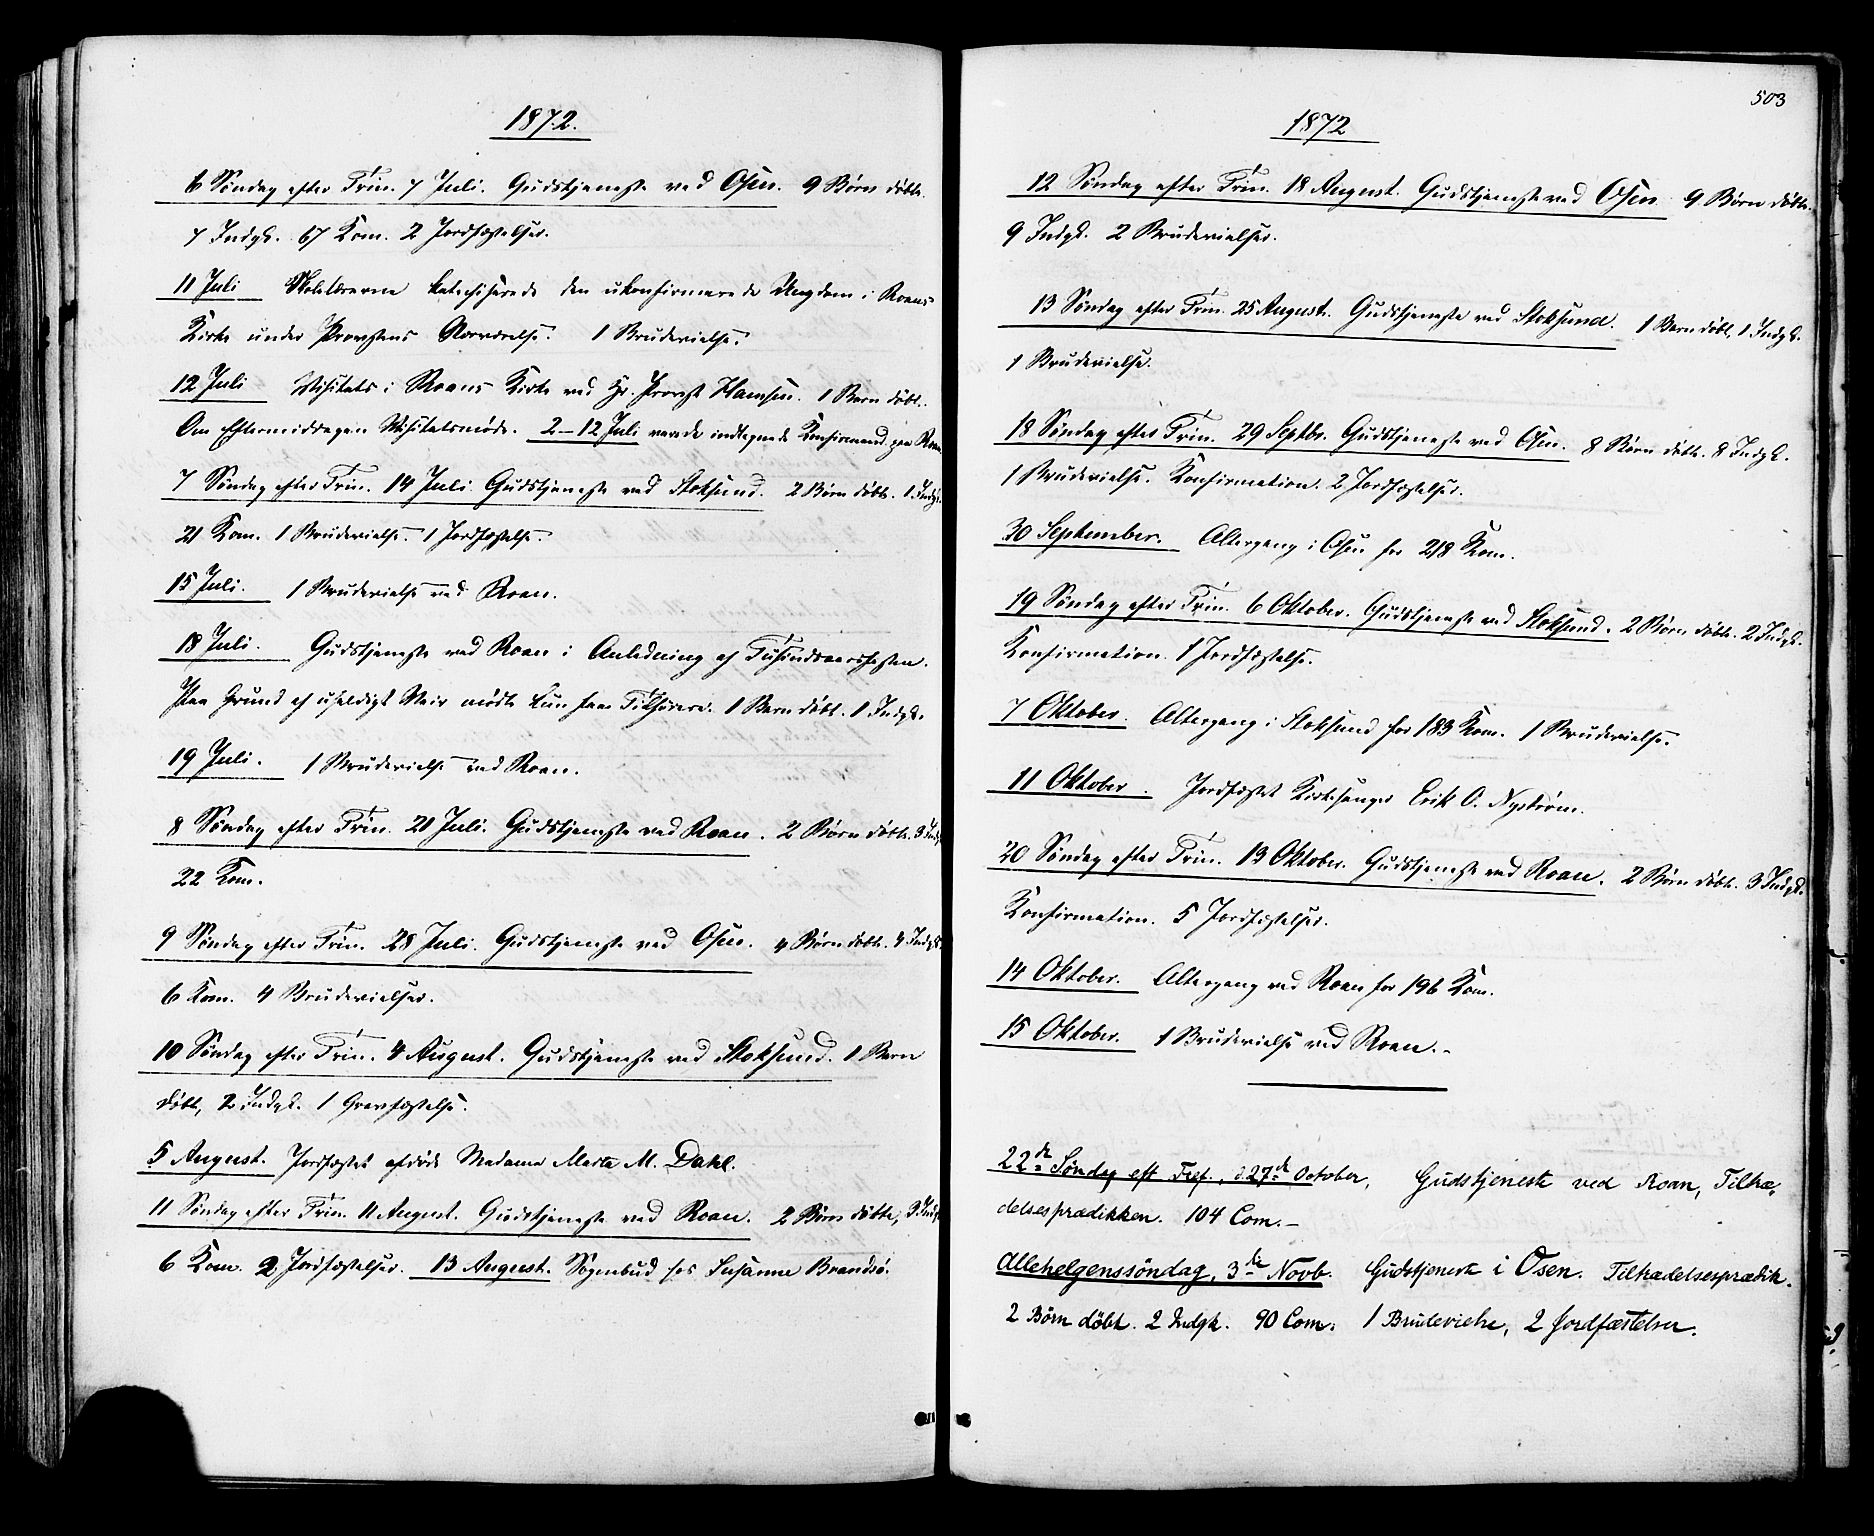 1872.
6 Søndag efter Trin. 7 Juli. Gudstjeneste ved Osen. 9 Børn døbte.
7 Indgk. 67 Kom. 2 Jordfæstelser.
11 Juli Skolelærerne katechiserede den ukonfirmerede Ungdom i Roans
Kirke under Provstens Nærværelse. 1 Brudevielse.
12 Juli Visitats i Roans Kirke ved Hr. Provst Hansen. 1 Barn døbt.
Om Eftermiddagen Visitatsmøde. 2-12 Juli vare de indtegnede Konfirmand. paa Roan.
7 Søndag efter Trin. 14 Juli Gudstjeneste ved Stoksund. 2 Børn døbt. 1 Indgk.
21 Kom. 1 Brudevielse. 1 Jordfæstelse.
15 Juli. 1 Brudevielse ved Roan.
18 Juli. Gudstjeneste ved Roan i Anledning af Tusindaarsfesten.
Paa Grund af uheldigt Veir mødte kun faa Tilhørere. 1 Barn døbt. 1 Indgk.
19 Juli. 1 Brudevielse ved Roan.
8 Søndag efter Trin. 21 Juli. Gudstjeneste ved Roan. 2 Børn døbt. 3 Indgk.
22 Kom.
9 Søndag efter Trin. 28 Juli. Gudstjeneste ved Osen. 4 Børn døbt. 4 Indgk.
6 Kom. 4 Brudevielser.
10 Søndag efter Trin. 4 August. Gudstjeneste ved Stoksund. 1 Barn
døbt, 2 Indgk. 1 Gravfæstelse.
5 August. Jordfæstet afdøde Madame Marta M. Dahl.
11 Søndag efter Trin. 11 August. Gudstjeneste ved Roan. 2 Børn døbte, 3 Indgk.
6 Kom. 2 Jordfæstelser. 13 August. Sognebud hos Susanne Brandsø.
503
1872
12 Søndag efter Trin. 18 August. Gudstjeneste ved Osen. 9 Børn døbte.
9 Indgk. 2 Brudevielser.
13 Søndag efter Trin. 25 August. Gudstjeneste ved Stoksund. 1 Barn døbt, 1 Indgk.
1 Brudevielse.
18 Søndag efter Trin. 29 Septbr. Gudstjeneste ved Osen. 8 Børn døbt. 8 Indgk.
1 Brudevielse. Konfirmation. 2 Jordfæstelser.
30 September. Altergang i Osen for 218 Kom.
19 Søndag efter Trin. 6 Oktober. Gudstjeneste ved Stoksund. 2 Børn døbt. 2 Indgk.
Konfirmation. 1 Jordfæstelse.
7 Oktober. Altergang i Stoksund for 183 Kom. 1 Brudevielse.
11 Oktober. Jordfæstet Kirkesanger Erik O. Nystrøm.
20 Søndag efter Trin. 13 Oktober. Gudstjeneste ved Roan. 2 Børn døbt. 3 Indgk.
Konfirmation. 5 Jordfæstelser.
14 Oktober. Altergang ved Roan for 196 Kom.
15 Oktober. 1 Brudevielse ved Roan.-
22de Søndag eft Tref., d. 27de October, Gudstjeneste ved Roan, Tiltræ-
delsesprædikken. 104 Com.-
Allehelgenssöndag, 3die Novb. Gudstjeneste i Osen. Tiltrædelsesprædik.
2 Börn döbt. 2 Indgk. 90 Com. 1 Brudevielse, 2 Jordfæstelser.